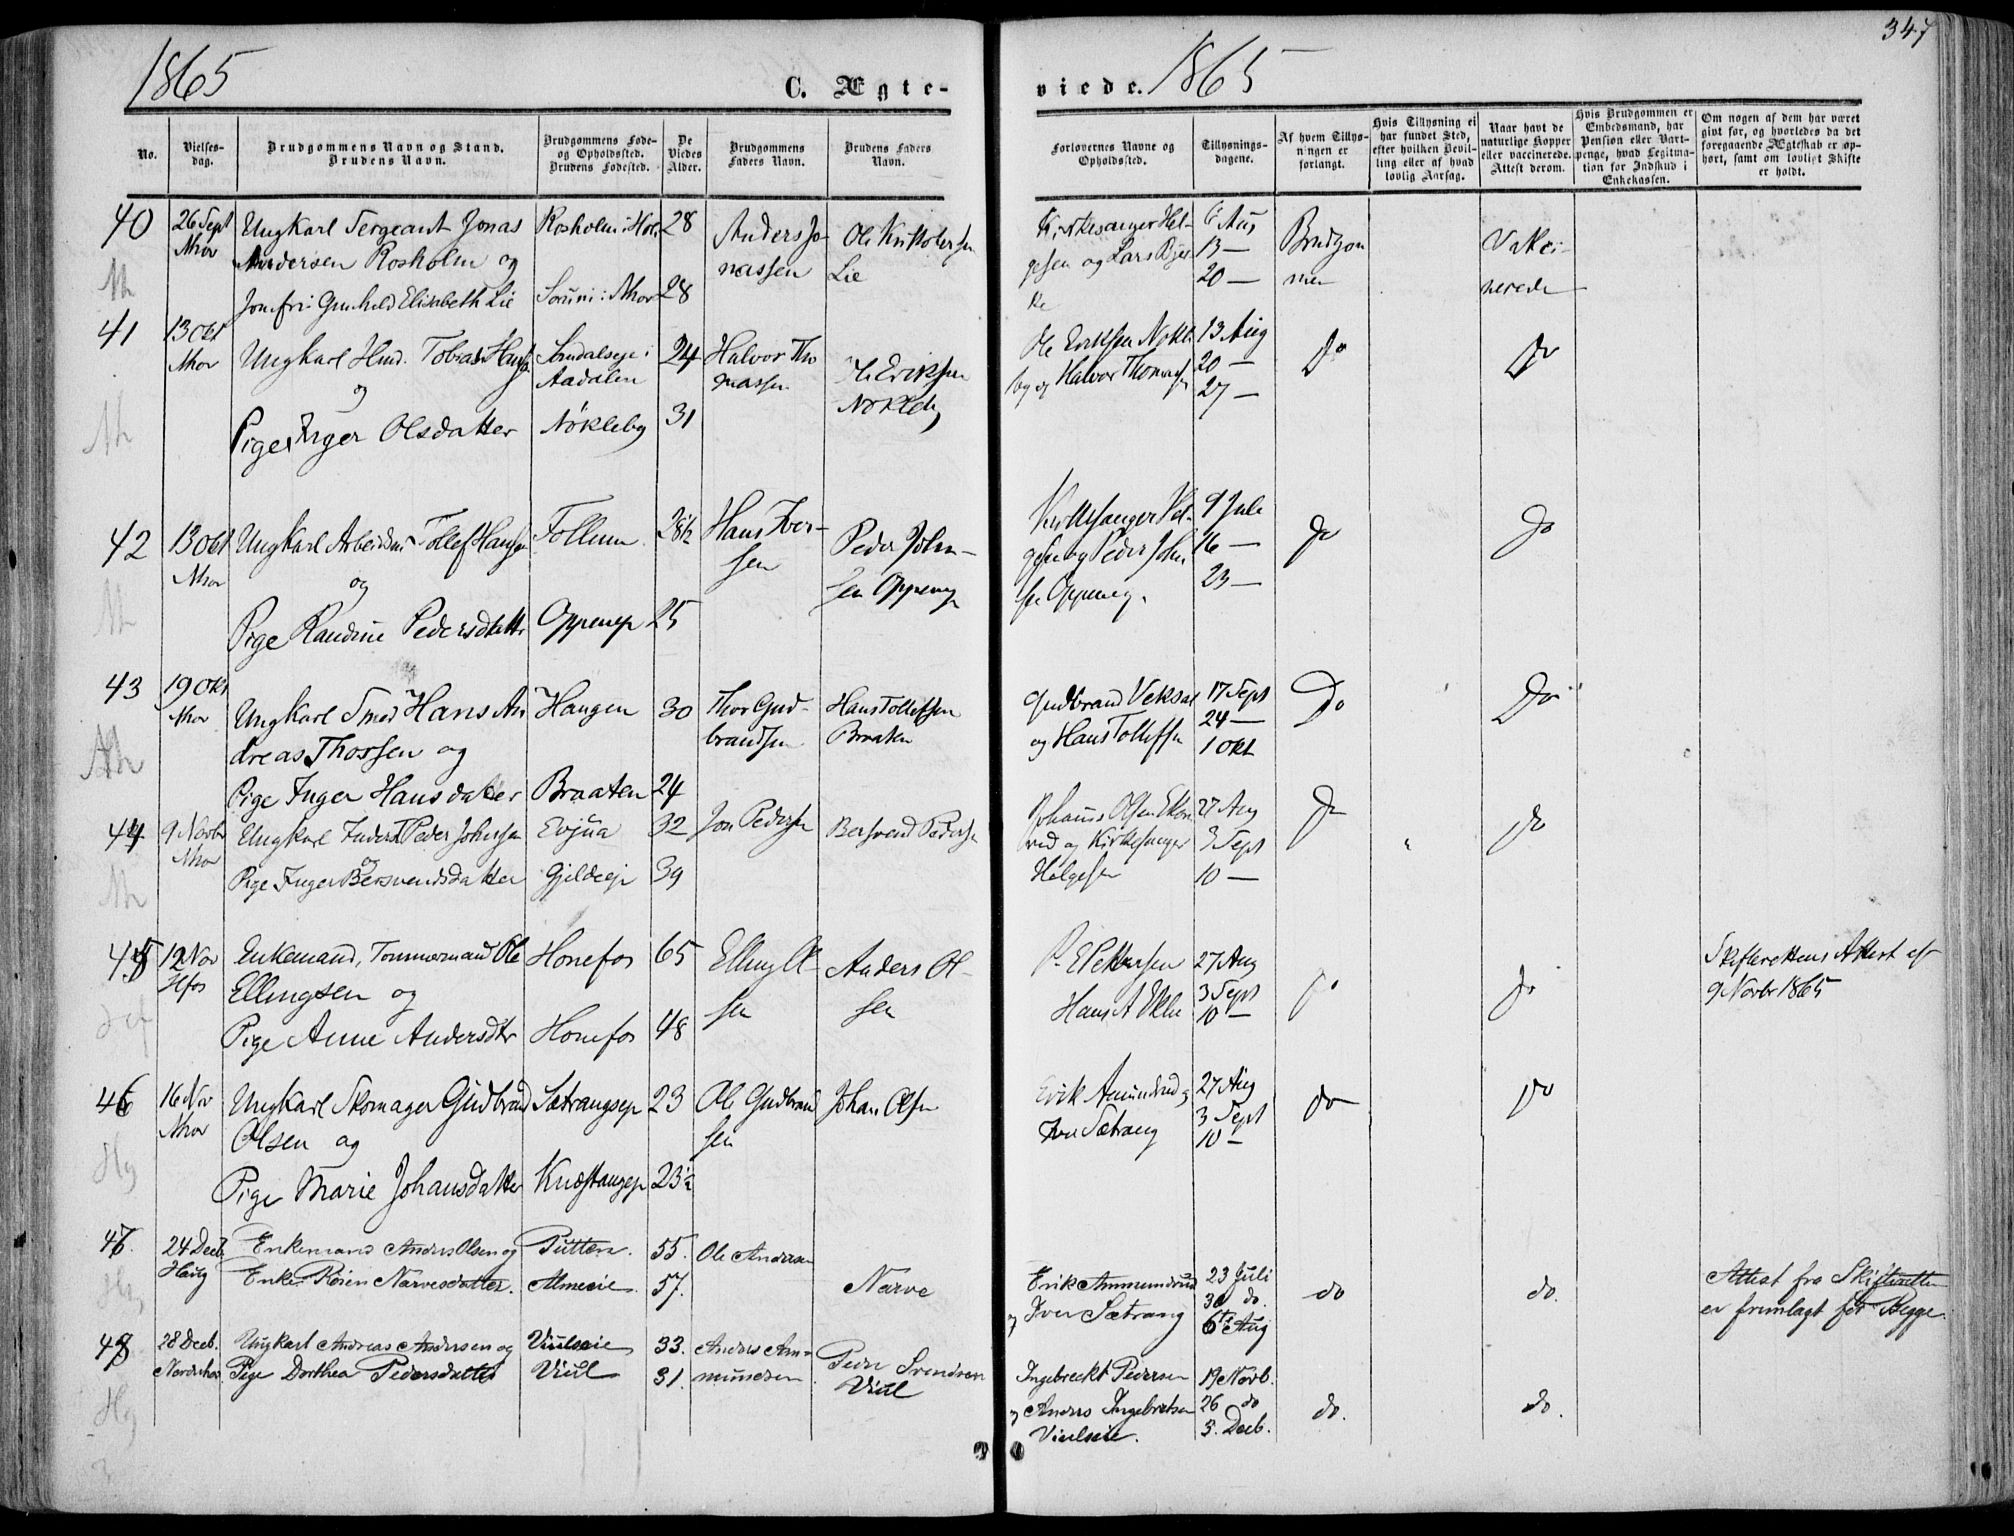 1865
C. Ægte-
No.
Vielses-
dag.
Brudgommens Navn og Stand.
Brudens Navn.
Brudgommens Føde-
og Opholdssted.
Brudens Fødested.
De
Viedes
Alder.
Brudgommens
Faders Navn.
Brudens Faders
Navn.
40 26 Sept Ungkarl Sergeant Jonas Rosholm i Hol. 28 Anders Jo- Ole Kristofersen
Nhov Andersen Rosholm og nassen Lie
Jomfru Gunhild Elisabeth Lie Sørum i Nhov 28
41 13 Okt
Nhov Ungkarl Hmd. Tobias Søndalseje i 24 Halvor Tho
og Aadalen massen Eriksen
Pige Inger Olsdatter Nökleby 31 Nökleby
42 13 Okt Ungkarl Arbeidsm Tollef Hansen Follum 28½ Hans Iver- Peder John-
Nhov og sen sen Oppeneje
Pige Randine Pedersdatter Oppeneje 25
43 19 Okt
Nhov Ungkarl Smed Hans An Haugen 30 Thor Gud- Hans Tollefsen
dreas Thorsen og brandsen Braaten
Pige Inger Hansdatter Braaten 24
44 9 Novbr Ungkarl Inderst Peder Johnsen Evjua 32 Jon Pedersen Bersvend Pedersen
Nhov og
Pige Inger Bersvendsdatter Gjildeeje 39
45 12 Nov Enkemand, Tømmermand Ole Hønefos 65 Elling Ol- Anders Ol-
Hfos Ellingsen og sen sen
Pige Anne Andersdtr Hønefos 48
46 16 Nov Ungkarl Skomager Gudbrand Sætrangseje 23 Ole Gudbrand Johan Olsen
Nhov Olsen og sen
Pige Marie Johansdatter Knæstangeje 23½
47. 24 Decb. Enkemand Anders Olsen og Putten. 55. Ole Andersen
Haug Enke Kõien Narvesdatter. Almeeie 57. Narve
48 28 Decb. Ungkarl Andreas Andersen og Viulseie 33. Anders Am- Peder Svendsen
Norderhov Pige Dorthea Pedersdatter Viul 31. mundsen Viul
viede. 1865
347
Forlovernes Navne og
Opholdssted.
Tillysnings-
dagene.
Af hvem Tillys-
ningen er
forlangt.
Hvis Tillysning ei
har fundet Sted,
efter hvilken Bevil-
ling eller af hvad
lovlig Aarsag.
Naar havt de
naturlige Kopper
eller vaccinerede.
Attest derom.
Hvis Brudgommen er
Embedsmand, har
Pension eller Vart-
penge, hvad Legitima-
tion for Indskud i
Enkekassen.
Om nogen af dem har været
givt før, og hvorledes da det
foregaaende Ægteskab er op-
hørt, samt om lovligt Skifte
er holdt.
Kirkesanger Hel- 6 Aug Brudgom Vakci-
gesen og Lars Bjer 13 — men nerede
ke 20 —
Ole Eriksen Nökle 13 Aug Do Do
by og Halvor Thomassen 20 —
27 —
Kirkesanger Hel- 9 Juli Do Do
gesen og Peder John 16 —
sen Oppeneje. 23 —
Gudbrand Veksal 17 Sept Do Do
og Hans Tollefsen 24 —
1 Okt
Johannes Olsen 27 Aug Do Do
og Kirkesanger 3 Sept
Helgesen 10 —
P. E. Pettersen 27 Aug Do Do Skifterettens Attest af
Hans A 3 Sept 9 Novbr 1865
10 —
Erik Amundrud og 27 Aug Do Do
Iver Sætrang 3 Sept
10 —
Erik Ammundrud 23 Juli do do. Attest fra Skifteretten
og Iver Sætrang 30 do. er fremlagt for Begge.
6te Aug
Ingebreckt Pedersen 19 Novb. do. do.
og Anders Ingebretsen 26 do
Viulseie. 3. Decb.